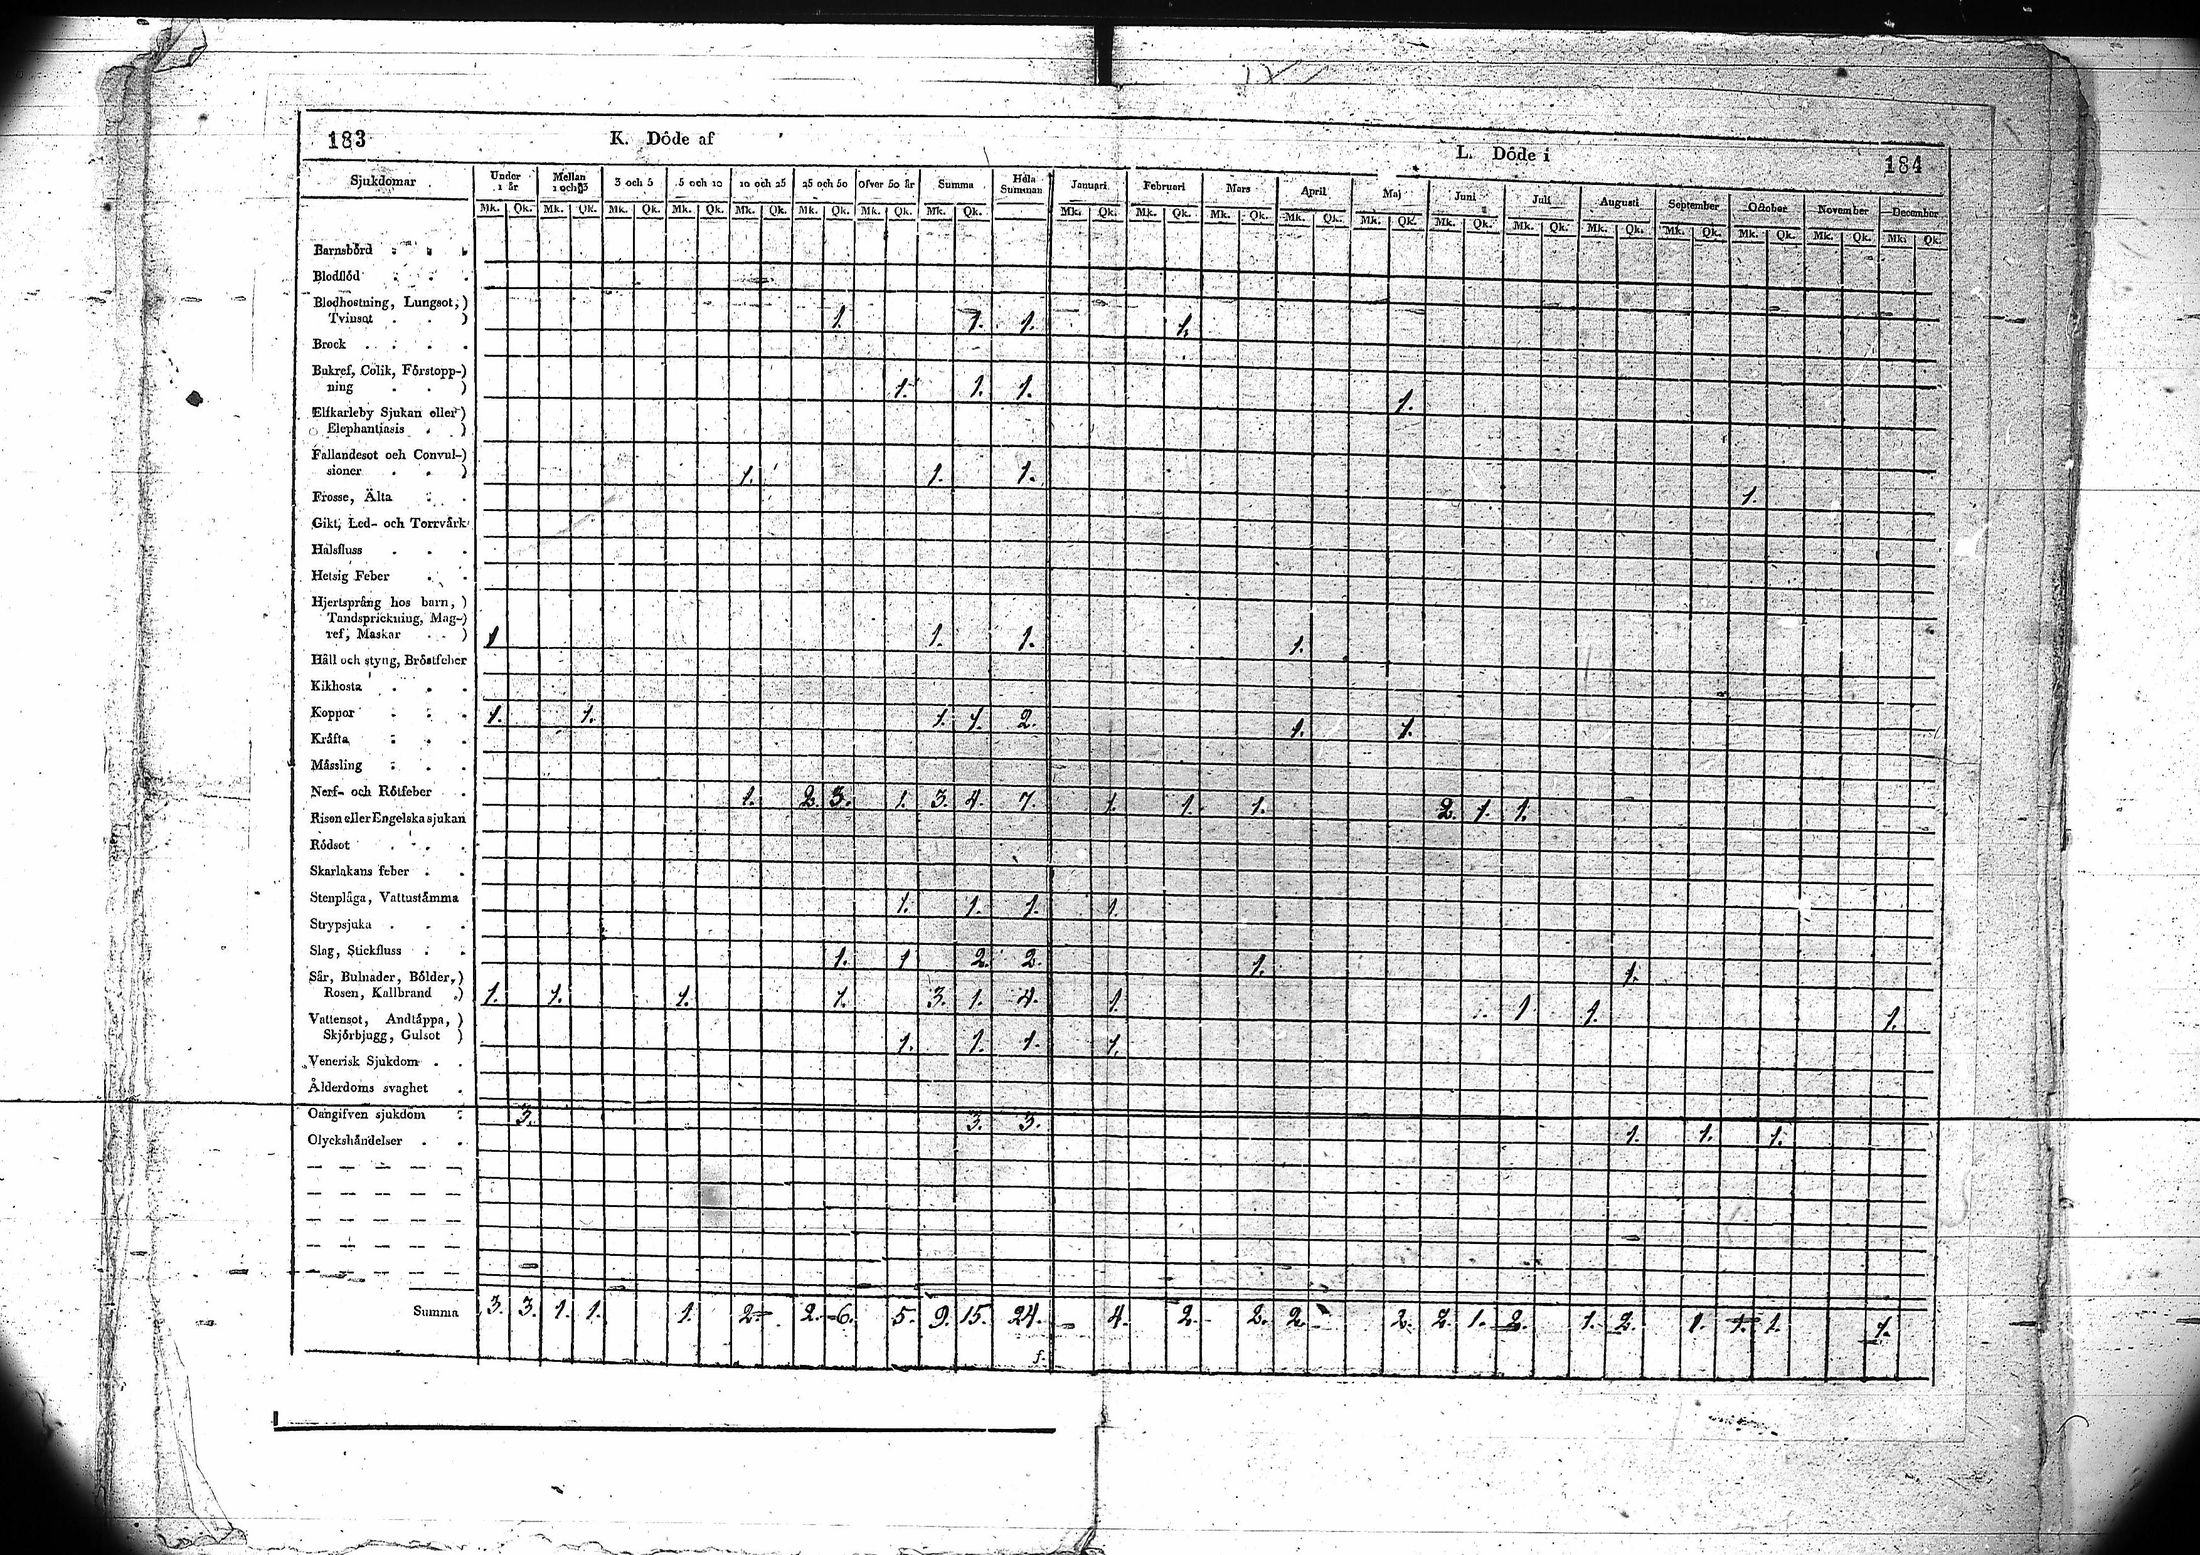 183 K. Döde af L. Döde i 184
Sjukdomar Under 1 år Mellan 1 och 3 3 och 5 5 och 10 10 och 25 25 och 50 Ofver 50 år Summa Hela Summan Januari Februari Mars April Maj Juni Juli Augusti September October November December
Mk. Qk. Mk. Qk. Mk. Qk. Mk. Qk. Mk. Qk. Mk. Qk. Mk. Qk. Mk. Qk. Mk. Qk. Mk. Qk. Mk. Qk. Mk. Qk. Mk. Qk. Mk. Qk. Mk. Qk. Mk. Qk. Mk. Qk. Mk. Qk. Mk. Qk. Mk. Qk.
Barnsbörd
Blodflöd
Blodhostning, Lungsot,)
Tvinsot ) 1. 1. 1. 1.
Brock
Bukref, Colik, Förstopp-)
ning ) 1. 1. 1. 1.
Elfkarleby Sjukan eller)
Elephantiasis )
Fallandesot och Convul-)
sioner ) 1. 1. 1. 1.
Frosse, Älta
Gikt, Led- och Torrvärk
Halsfluss
Hetsig Feber
Hjertsprång hos barn, )
Tandsprickning, Mag-)
ref, Maskar ) 1 1. 1. 1.
Håll och styng, Bröstfeber
Kikhosta
Koppor 1. 1. 1. 1. 2. 1. 1.
Kräfta
Mässling
Nerf- och Rötfeber 1. 2. 3. 1. 3. 4. 7. 1. 1. 1. 2. 1. 1.
Risen eller Engelska sjukan
Rödsot
Skarlakans feber
Stenplåga, Vattustämma 1. 1. 1. 1.
Strypsjuka
Slag, Stickfluss 1. 1 2. 2. 1. 1.
Sår, Bulnader, Bölder,)
Rosen, Kallbrand ) 1. 1. 1. 1. 3. 1. 4. 1. 1 1. 1.
Vattensot, Andtäppa, )
Skjörbjugg, Gulsot ) 1. 1. 1. 1.
Venerisk Sjukdom
Ålderdoms svaghet
Oangifven sjukdom 3. 3. 3. 1. 1. 1.
Olyckshändelser
Summa 3. 3. 1. 1. 1. 2 2. 6. 5. 9. 15. 24. 4. 2. 2. 2. 2. 2. 1. 2. 1. 2. 1. 1. 1. 1.
f.